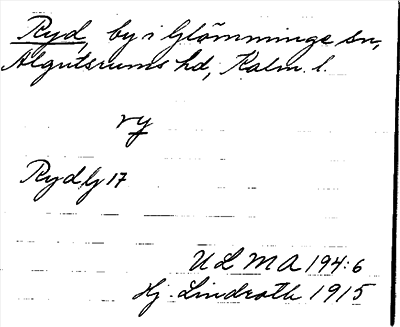 Ryd, by i Glömminge sn,
Algutsrums hd, Kalm. l.
ry
Ryd lj 17
ULMA 194:6
Hj. Lindroth 1915